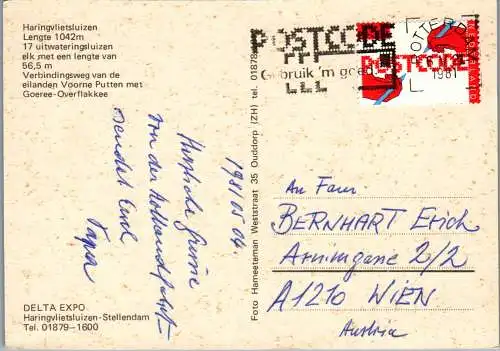 Haringvlietsluizen
Lengte 1042m
17 uitwateringsluizen
elk met een lengte van
56,5 m
Verbindingsweg van de
eilanden Voorne Putten met
Goeree-Overflakkee
1981 05 04.
Herzliche Grüsse
von der Hollandfahrt
sendet Euch
Papa
DELTA EXPO
Haringvlietsluizen-Stellendam
Tel. 01879-1600
Foto Hameeteman Weststraat 35 Ouddorp (ZH) tel. 01878
POSTCODE
Gebruik 'm goed
ROTTERDAM
1981
POSTCODE
NEDERLAND
An Fam.
BERNHART Erich
Arnimgasse 2/2
A1210 WIEN
Austria